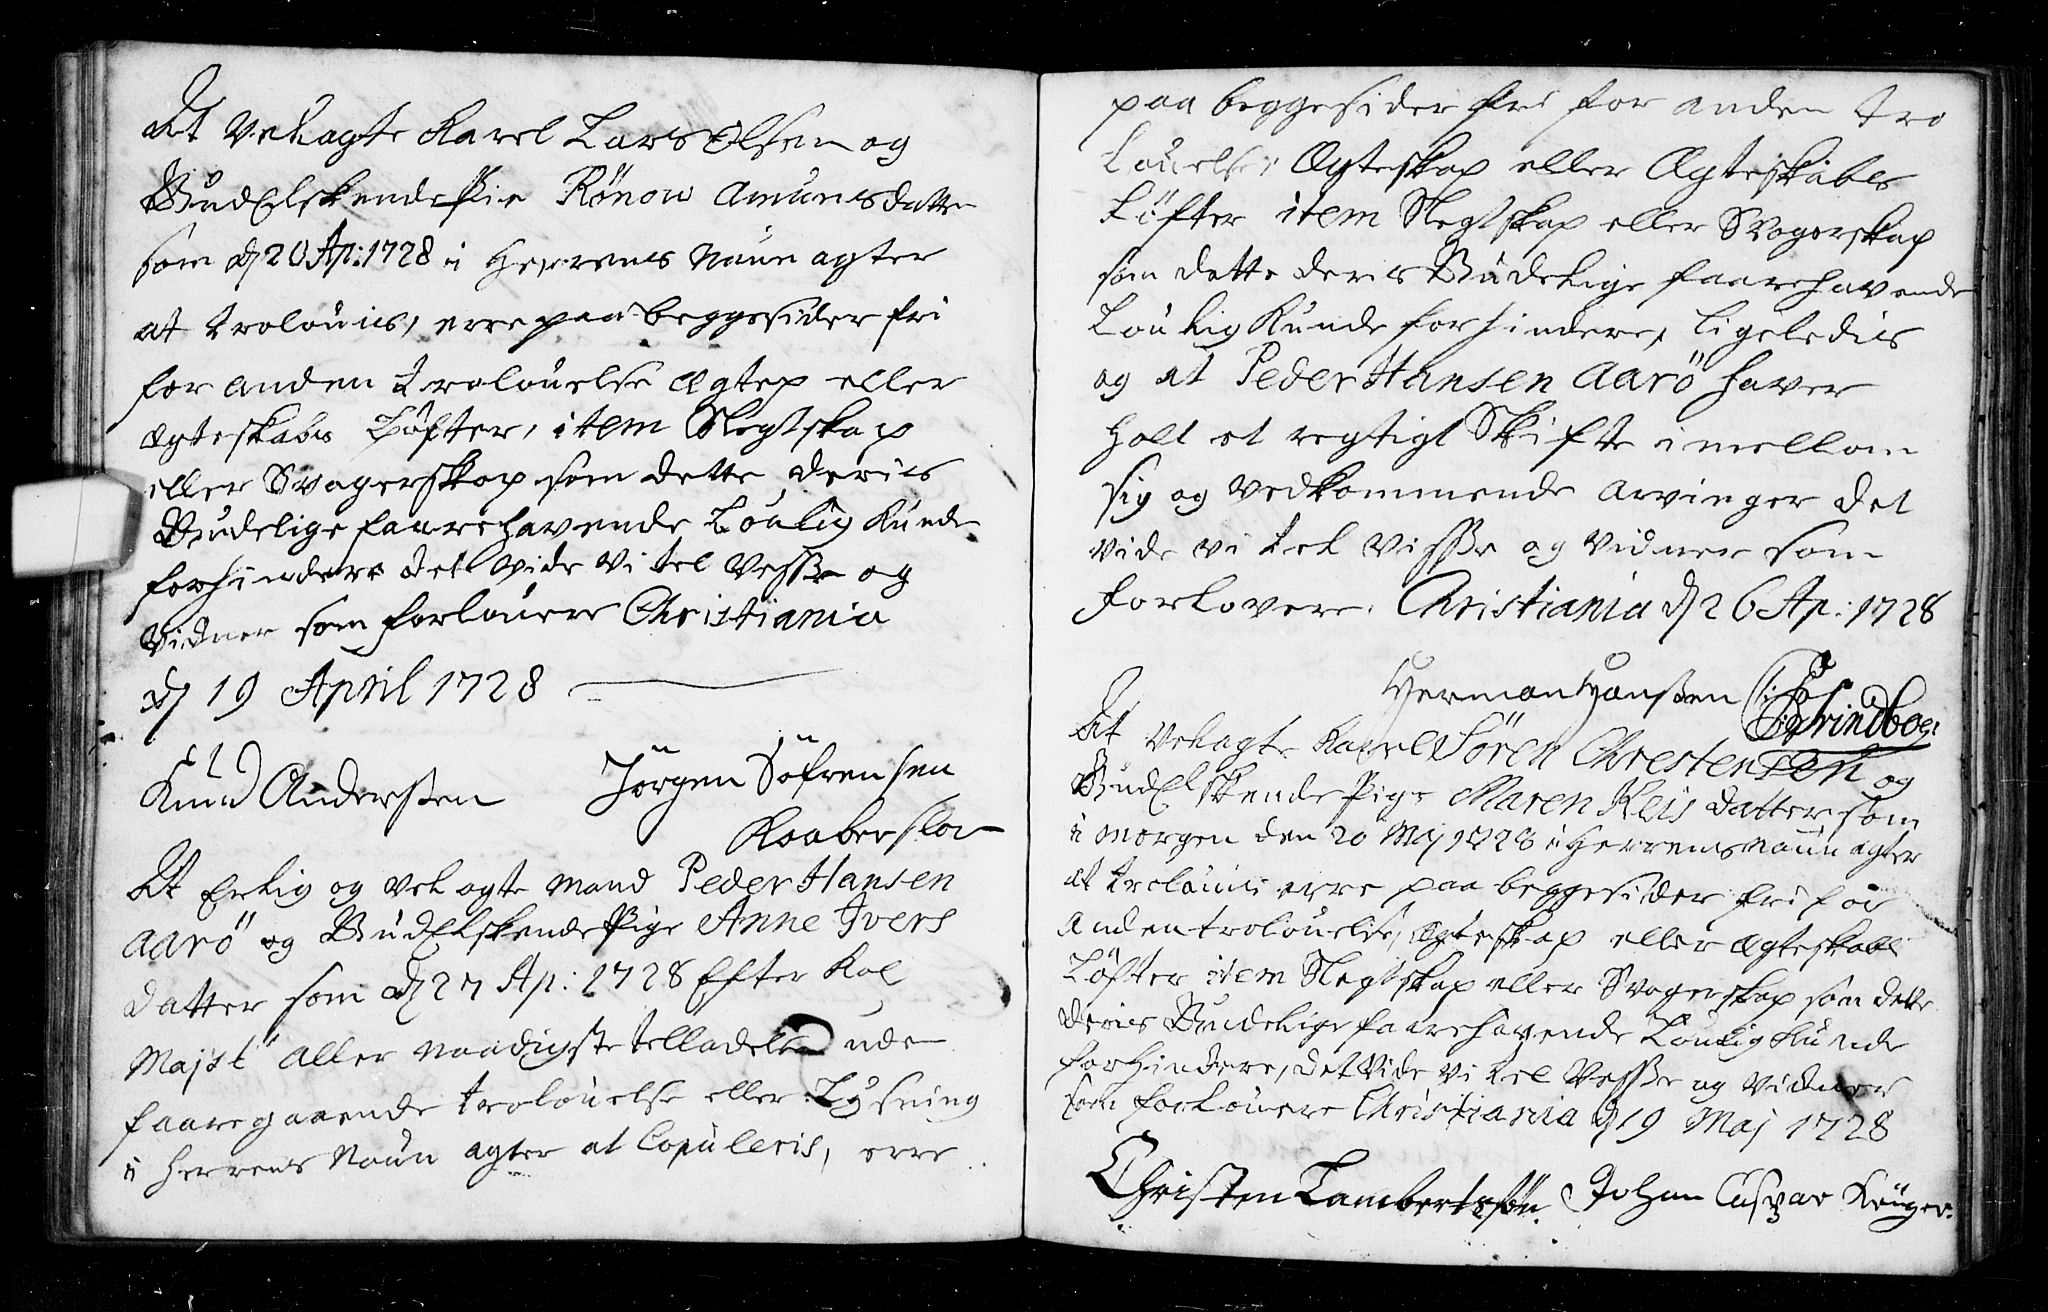 At Velagte Karel Lars Olsen og
Gudelskende Pie Rönow Amunsdatter
som dj 20 Ap: 1728 i Herrens Naun agter
at troloues, erre paa begge sider fri
for anden trolouelse Egtep eller
Egteskabs Löfter, item Slegtskap
eller Svogerskap som dette deris
Gudelige faarehavende Loulig Kunde
forhindere det vide vi tel Visse og
Vidner som forlouere Christiania
dj 19 April 1728
Knud Andersten Jörgen Söfrensen
Kaaberslar
At Erlig og Velagte Mand Peder Hansen
Aarö og Gudelskende Pige Anne Ivers
datter som dj 27 Ap: 1728 Efter Kol
Majst aller Naadigste telladelse uden
faaregaaende trolouelse eller Lysning
i Herrens Naun agter at Copuleris, erre
paa begge sider fri for anden tro
louelse, Egteskap eller Egteskabs
Löfter item Slegtskap eller Svogerskap
som dette deris Gudelige faarehavende
Loulig Kunde forhindere, ligeledis
og at Peder Hansen Aarö haver
holt et regtigt Skifte imellom
sig og vedkommende Arvinger det
vide vi tel Visse og Vidner som
forlovere. Christiania dj 26 Ap: 1728
Herman Hansen
At Velagte Karel Sören Chrestensen og
Gudelskende Pige Maren Keis datter som
i morgen den 20 Mij 1728 i Herrens Naun agter
at troloues erre paa begge sider fri for
Anden trolouelse, Egteskap eller Egteskabs
Löfter item Slegtskap eller Svogerskap som dette
deris Gudelige faarehavende Loulig Kunde
forhindere, det Vide vi tel Visse og Vidner
som forlouere Christiania dj 19 Maj 1728
Christen Lambertsøn. Johan Caspar Krüger.